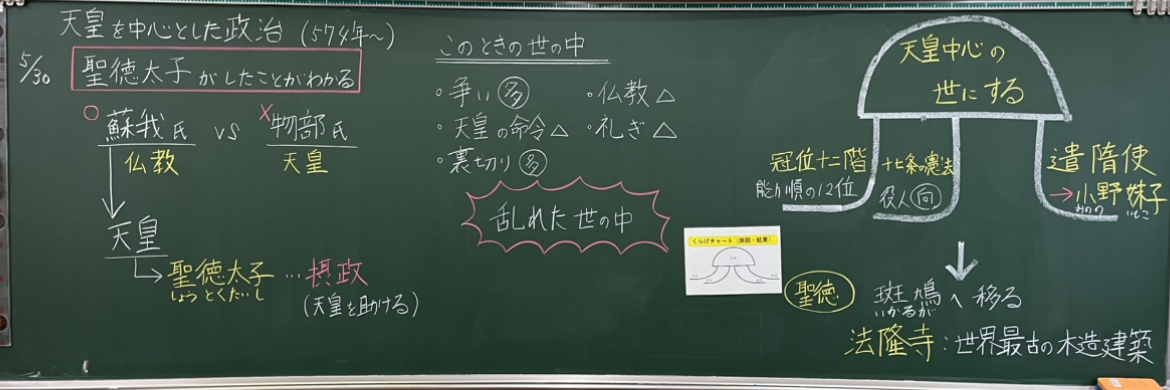 天皇を中心とした政治 (574年~)
5/30
聖徳太子がしたことがわかる
○蘇我氏 vs ×物部氏
仏教 天皇
天皇
聖徳太子…摂政
しょうとくたいし
(天皇を助ける)
このときの世の中
・争い 多
・天皇の命令△
・裏切り 多
・仏教△
・礼ぎ△
乱れた世の中
くらげチャート(原因・結果)
天皇中心の
世にする
冠位十二階
能力順の12位
十七条の憲法
役人 向
遣隋使
→小野妹子
おのの いもこ
聖徳
斑鳩へ移る
いかるが
法隆寺:世界最古の木造建築